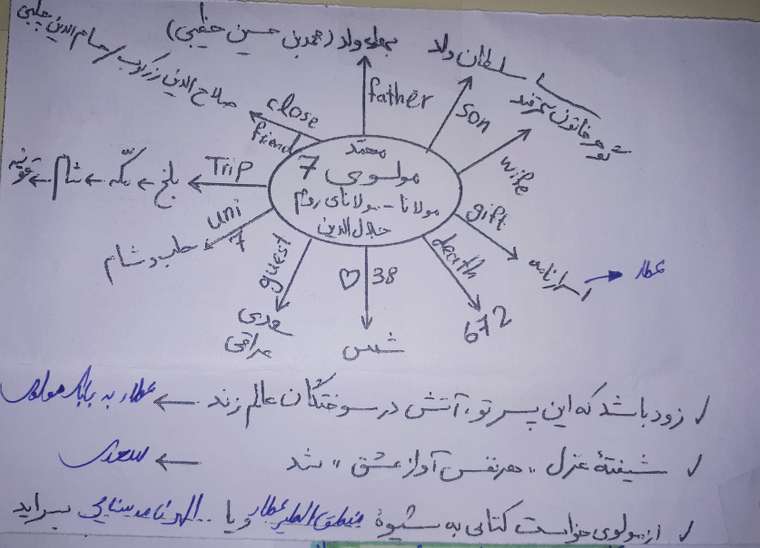 صلاح الدین زرکوب / حسام الدین چلبی
بهاء ولد (محمد بن حسین خطیبی)
سلطان ولد
گوهر خاتون سمرقند
close friend
father
son
wife
محمد
مولوی 7
مولانا - مولانای روم
جلال الدین
Trip
بلخ ← مکه ← شام ← قونیه
uni 7
حلب و شام
guest
سعدی
عراقی
♡ 38
شمس
death
672
gift
اسرارنامه → عطار
✓ زود باشد که این پسر تو، آتش در سوختگان عالم زند ← عطار به بابای مولوی
✓ شیفتهٔ غزل «هر نفس آواز عشق» شد ← سعدی
✓ از مولوی خواست کتابی به شیوهٔ منطق الطیر عطار و یا الهی نامه سنایی بسراید